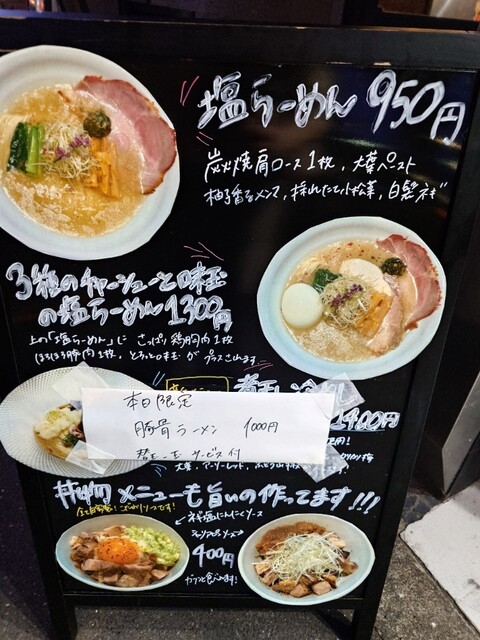 塩らーめん 950円
炭火焼肩ロース1枚、大葉ペースト
柚子香るメンマ、採れたて小松菜、白髪ネギ
3種のチャーシューと味玉
の塩らーめん1300円
上の「塩らーめん」に さっぱり鶏胸肉1枚
ほろほろ豚肉1枚、とろっと味玉 が プラスされます
本日限定
豚骨ラーメン 1000円
替玉一玉 サービス付
1400円
丼物メニューも旨いの作ってます!!!
ネギ塩にんにくソース
400円
ガツンと食べれます!